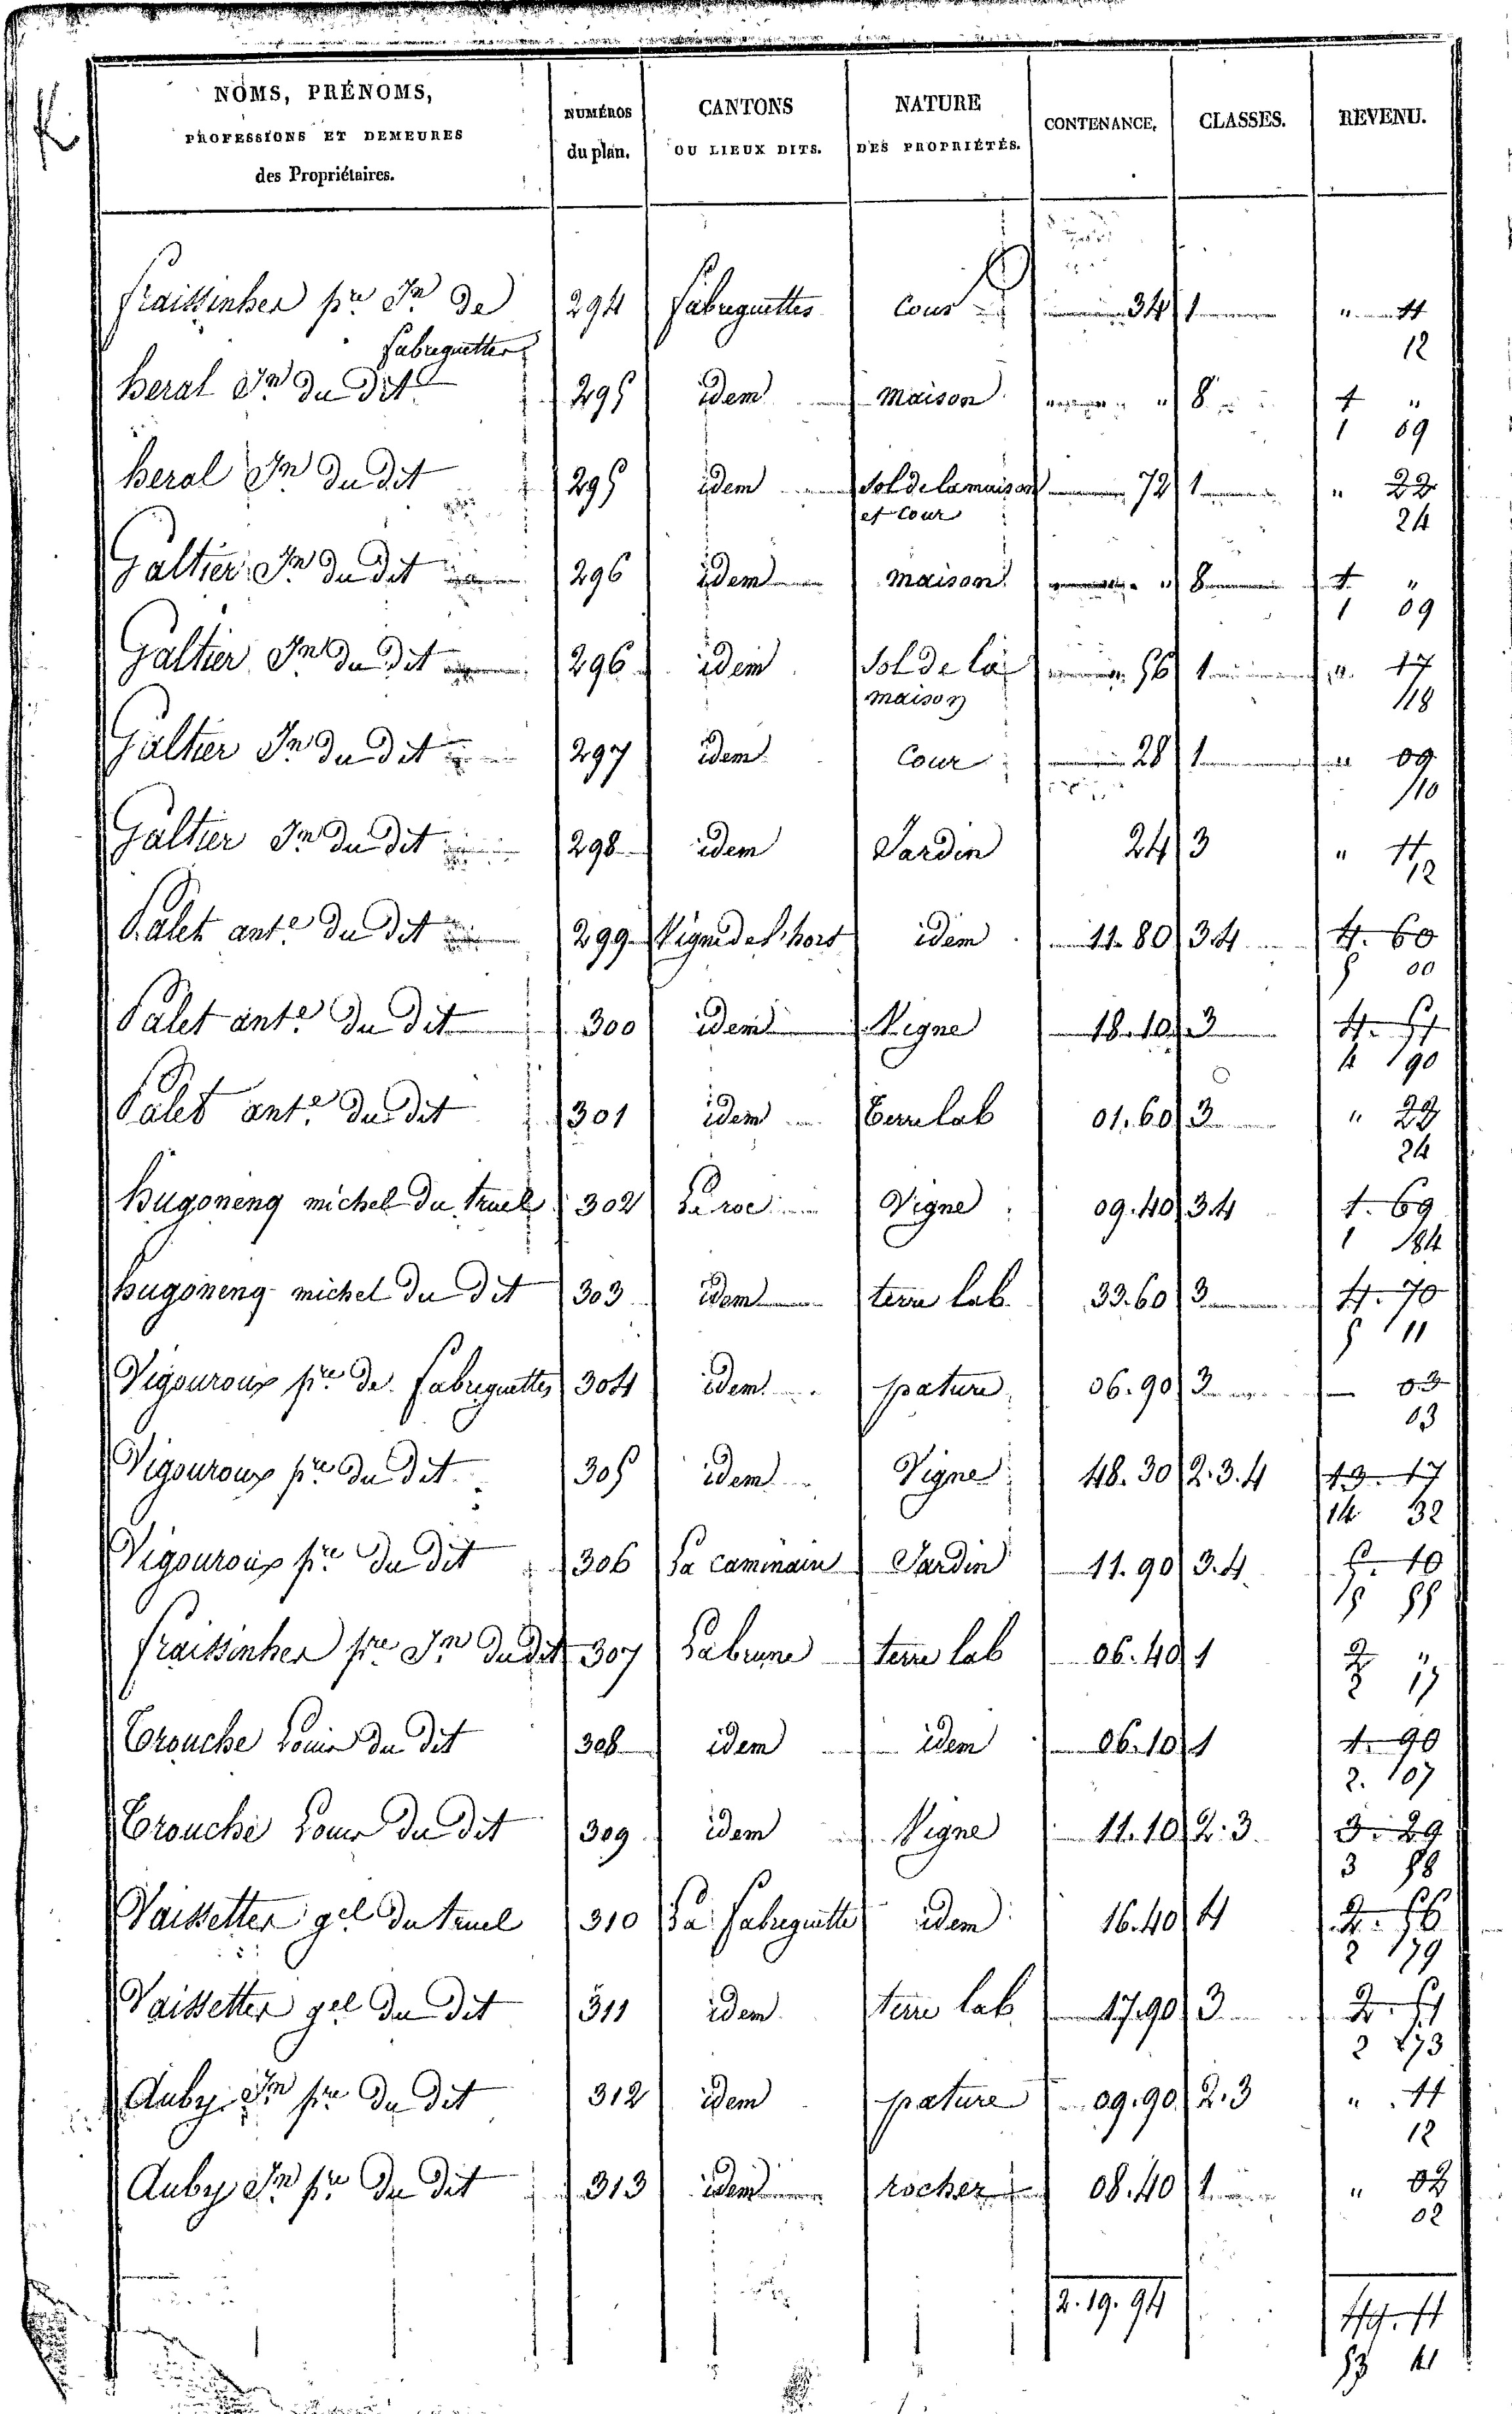 K
NOMS, PRÉNOMS, PROFESSIONS ET DEMEURES des Propriétaires. | NUMÉROS du plan. | CANTONS OU LIEUX DITS. | NATURE DES PROPRIÉTÉS. | CONTENANCE. | CLASSES. | REVENU.
fraissinhes pre Jn de | 294 | fabreguettes | Cour | 34 | 1 | " 11
fabreguettes | 12
heral Jn du dit | 295 | idem | maison | " | 8 | 1 "
1 09
heral Jn du dit | 295 | idem | Sol de la maison | 72 | 1 | " 22
et Cour | 24
Galtier Jn du dit | 296 | idem | maison | " | 8 | 1 "
1 09
Galtier Jn du dit | 296 | idem | Sol de la | 56 | 1 | " 17
maison | 18
Galtier Jn du dit | 297 | idem | Cour | 28 | 1 | " 09
10
Galtier Jn du dit | 298 | idem | Jardin | 24 | 3 | " 11
12
Palet ante du dit | 299 | Vigne de l'hort | idem | 11.80 | 3.4 | 4.60
5 00
Palet ante du dit | 300 | idem | Vigne | 18.10 | 3 | 4.51
4 90
Palet ante du dit | 301 | idem | terre lab | 01.60 | 3 | " 22
24
hugoneng michel du truel | 302 | La roc | Vigne | 09.40 | 3.4 | 1.69
1 84
hugoneng michel du dit | 303 | idem | terre lab | 33.60 | 3 | 4.70
5 11
Vigouroux pre de fabreguettes | 304 | idem | pature | 06.90 | 3 | 03
03
Vigouroux pre du dit | 305 | idem | Vigne | 48.30 | 2.3.4 | 13.17
14 32
Vigouroux pre du dit | 306 | La caminade | Jardin | 11.90 | 3.4 | 5.10
5 55
fraissinhes pre Jn du dit | 307 | Labrune | terre lab | 06.40 | 1 | 2 "
2 17
Crouche Louis du dit | 308 | idem | idem | 06.10 | 1 | 1.90
2.07
Crouche Louis du dit | 309 | idem | Vigne | 11.10 | 2.3 | 3.29
3 58
Vaissettes gel du truel | 310 | La fabreguette | idem | 16.40 | 4 | 2.56
2 79
Vaissettes gel du dit | 311 | idem | terre lab | 17.90 | 3 | 2.51
2 73
Auby Jn pre du dit | 312 | idem | pature | 09.90 | 2.3 | " 11
12
Auby Jn pre du dit | 313 | idem | rocher | 08.40 | 1 | " 02
02
2.19.94 | 49.11
53 41